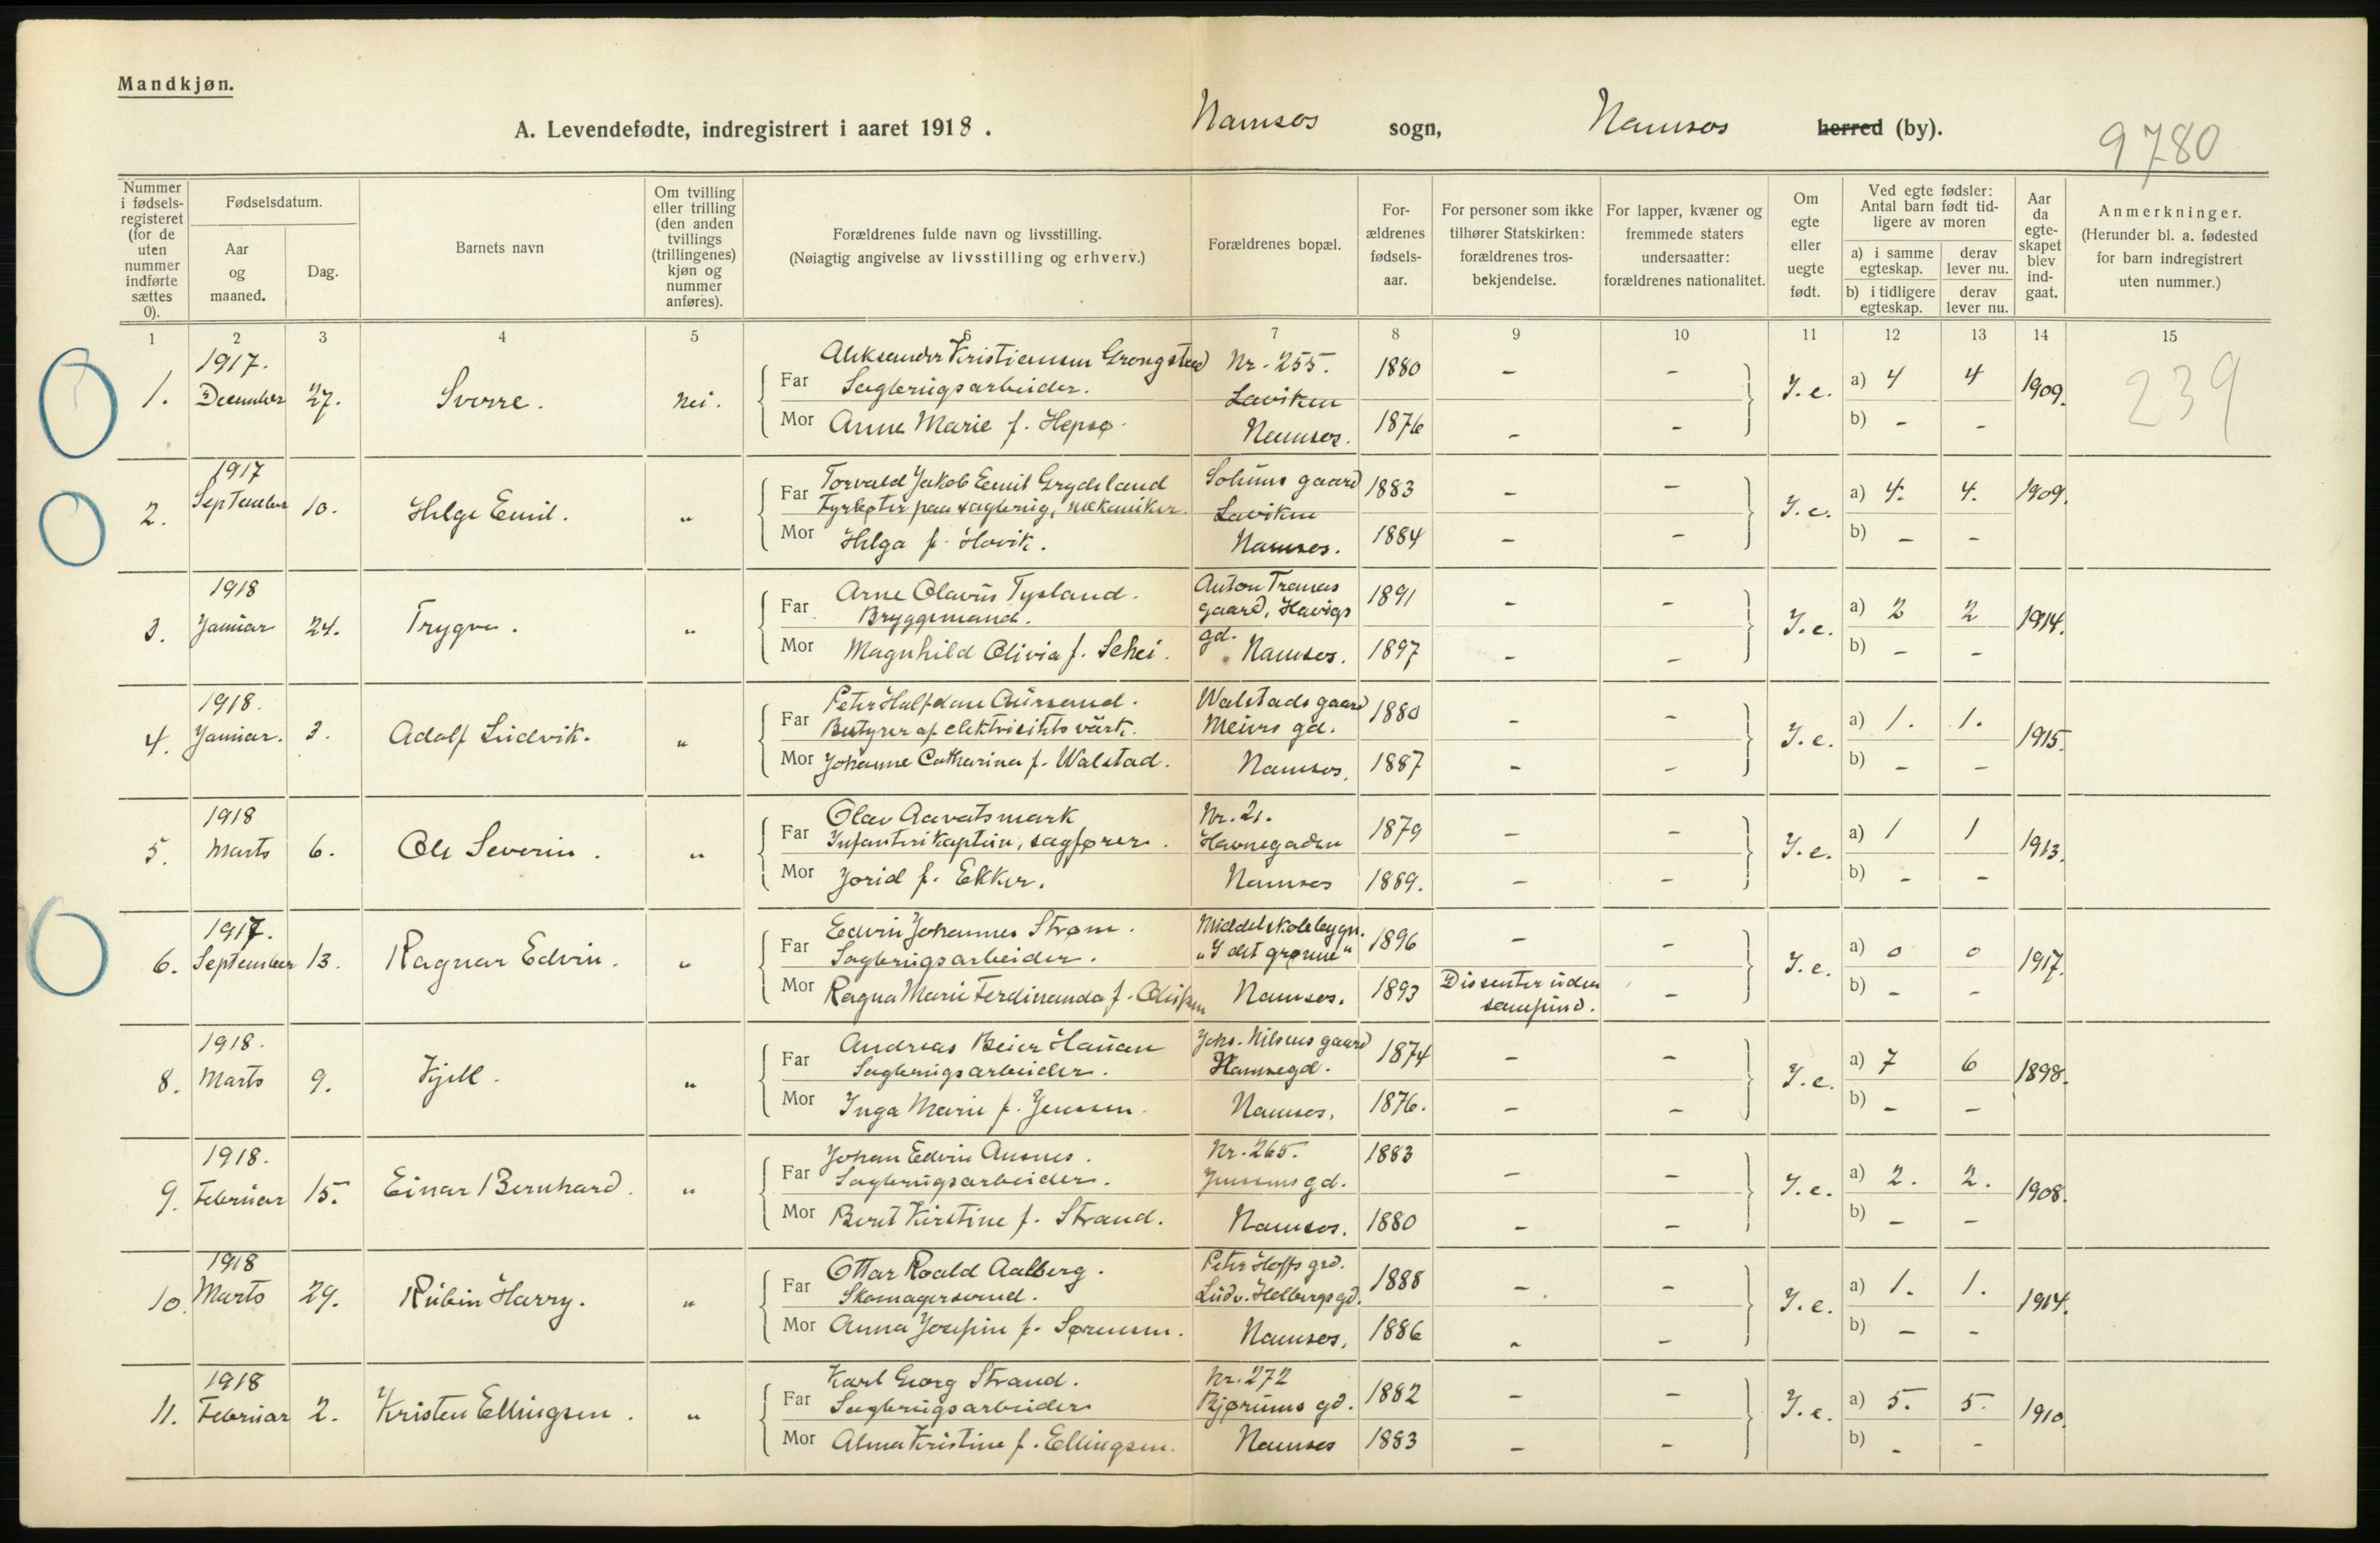 Mandkjøn.
A. Levendefødte, indregistrert i aaret 1918. Namsos sogn, Namsos herred (by).
9780
Nummer i fødsels-registeret (for de uten nummer indførte sættes 0).
Fødselsdatum.
Aar og maaned.
Dag.
Barnets navn
Om tvilling eller trilling (den anden tvillings (trillingenes) kjøn og nummer anføres).
Forældrenes fulde navn og livsstilling.
(Nøiagtig angivelse av livsstilling og erhverv.)
Forældrenes bopæl.
For-ældrenes fødsels-aar.
For personer som ikke tilhører Statskirken: forældrenes tros-bekjendelse.
For lapper, kvæner og fremmede staters undersaatter: forældrenes nationalitet.
Om egte eller uegte født.
Ved egte fødsler: Antal barn født tid-ligere av moren
a) i samme egteskap. derav lever nu.
b) i tidligere egteskap. derav lever nu.
Aar da egte-skapet blev ind-gaat.
Anmerkninger.
(Herunder bl. a. fødested for barn indregistrert uten nummer.)
1 2 3 4 5 6 7 8 9 10 11 12 13 14 15
1917. Aleksander Kristiansen Grongstad Nr. 255.
1. December 27. Sverre. Nei. Far Sagbrugsarbeider. Laviken 1880 - - I. e. a) 4 4 1909. 239
Mor Anna Marie f. Hepsø. Namsos. 1876 - - b) - -
1917 Torvald Jakob Emil Grydeland Solums gaard
2. September 10. Helge Emil. " Far Fyrbøter paa sagbrug, mekaniker. Laviken 1883 - - I. e. a) 4. 4. 1909.
Mor Helga f. Hovik. Namsos. 1884 - - b) - -
1918 Arne Olavus Tysland. Anton Tranaas
3. Januar 24. Trygve. " Far Bryggemand. gaard, Havigs gd. 1891 - - I. e. a) 2 2 1914.
Mor Magnhild Olivia f. Schei. Namsos. 1897 - - b) - -
1918. Peter Halfdan Aursand. Walstads gaard
4. Januar. 3. Adolf Ludvik. " Far Bestyrer af elektricitetsværk. Meiers gd. 1880 - - I. e. a) 1. 1. 1915.
Mor Johanne Catharina f. Walstad. Namsos. 1887 - - b) - -
1918 Olav Aavatsmark Nr. 21.
5. Marts 6. Ole Severin. " Far Infanterikaptein, sagfører. Havnegaden 1879 - - I. e. a) 1 1 1913.
Mor Jorid f. Ekker. Namsos 1889. - - b) - -
1917. Edvin Johannes Strøm. Middelskolebygn.
6. September 13. Ragnar Edvin. " Far Sagbrugsarbeider. "I det grønne" 1896 - - I. e. a) 0 0 1917.
Mor Ragna Marie Ferdinanda f. Olufsen Namsos. 1893 Dissenter uden samfund. - b) - -
1918. Andreas Beier Hauan Johs. Nilsens gaard
8. Marts 9. Kjell. " Far Sagbrugsarbeider. Havnegd. 1874 - - I. e. a) 7 6 1898.
Mor Inga Marie f. Jensen. Namsos. 1876. - - b) - -
1918. Johan Edvin Ausnes. Nr. 265.
9. Februar 15. Einar Bernhard. " Far Sagbrugsarbeider. Jensens gd. 1883 - - I. e. a) 2. 2. 1908.
Mor Berit Kirstine f. Strand. Namsos. 1880 - - b) - -
1918 Ottar Roald Aalberg. Peter Hoffs grd.
10. Marts 29. Rubin Harry. " Far Skomagersvend. Ludv. Holbergs gd. 1888 - - I. e. a) 1. 1. 1914.
Mor Anna Josefine f. Sørensen. Namsos. 1886 - - b) - -
1918 Karl Georg Strand. Nr. 272
11. Februar 2. Kristen Ellingsen. " Far Sagbrugsarbeider Bjørums gd. 1882 - - I. e. a) 5. 5. 1910.
Mor Alma Kristine f. Ellingsen. Namsos 1883 - - b) - -